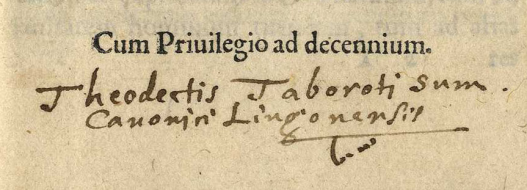 Cum Priuilegio ad decennium.
Theodectis Taboroti sum.
Canonici Lingonensis